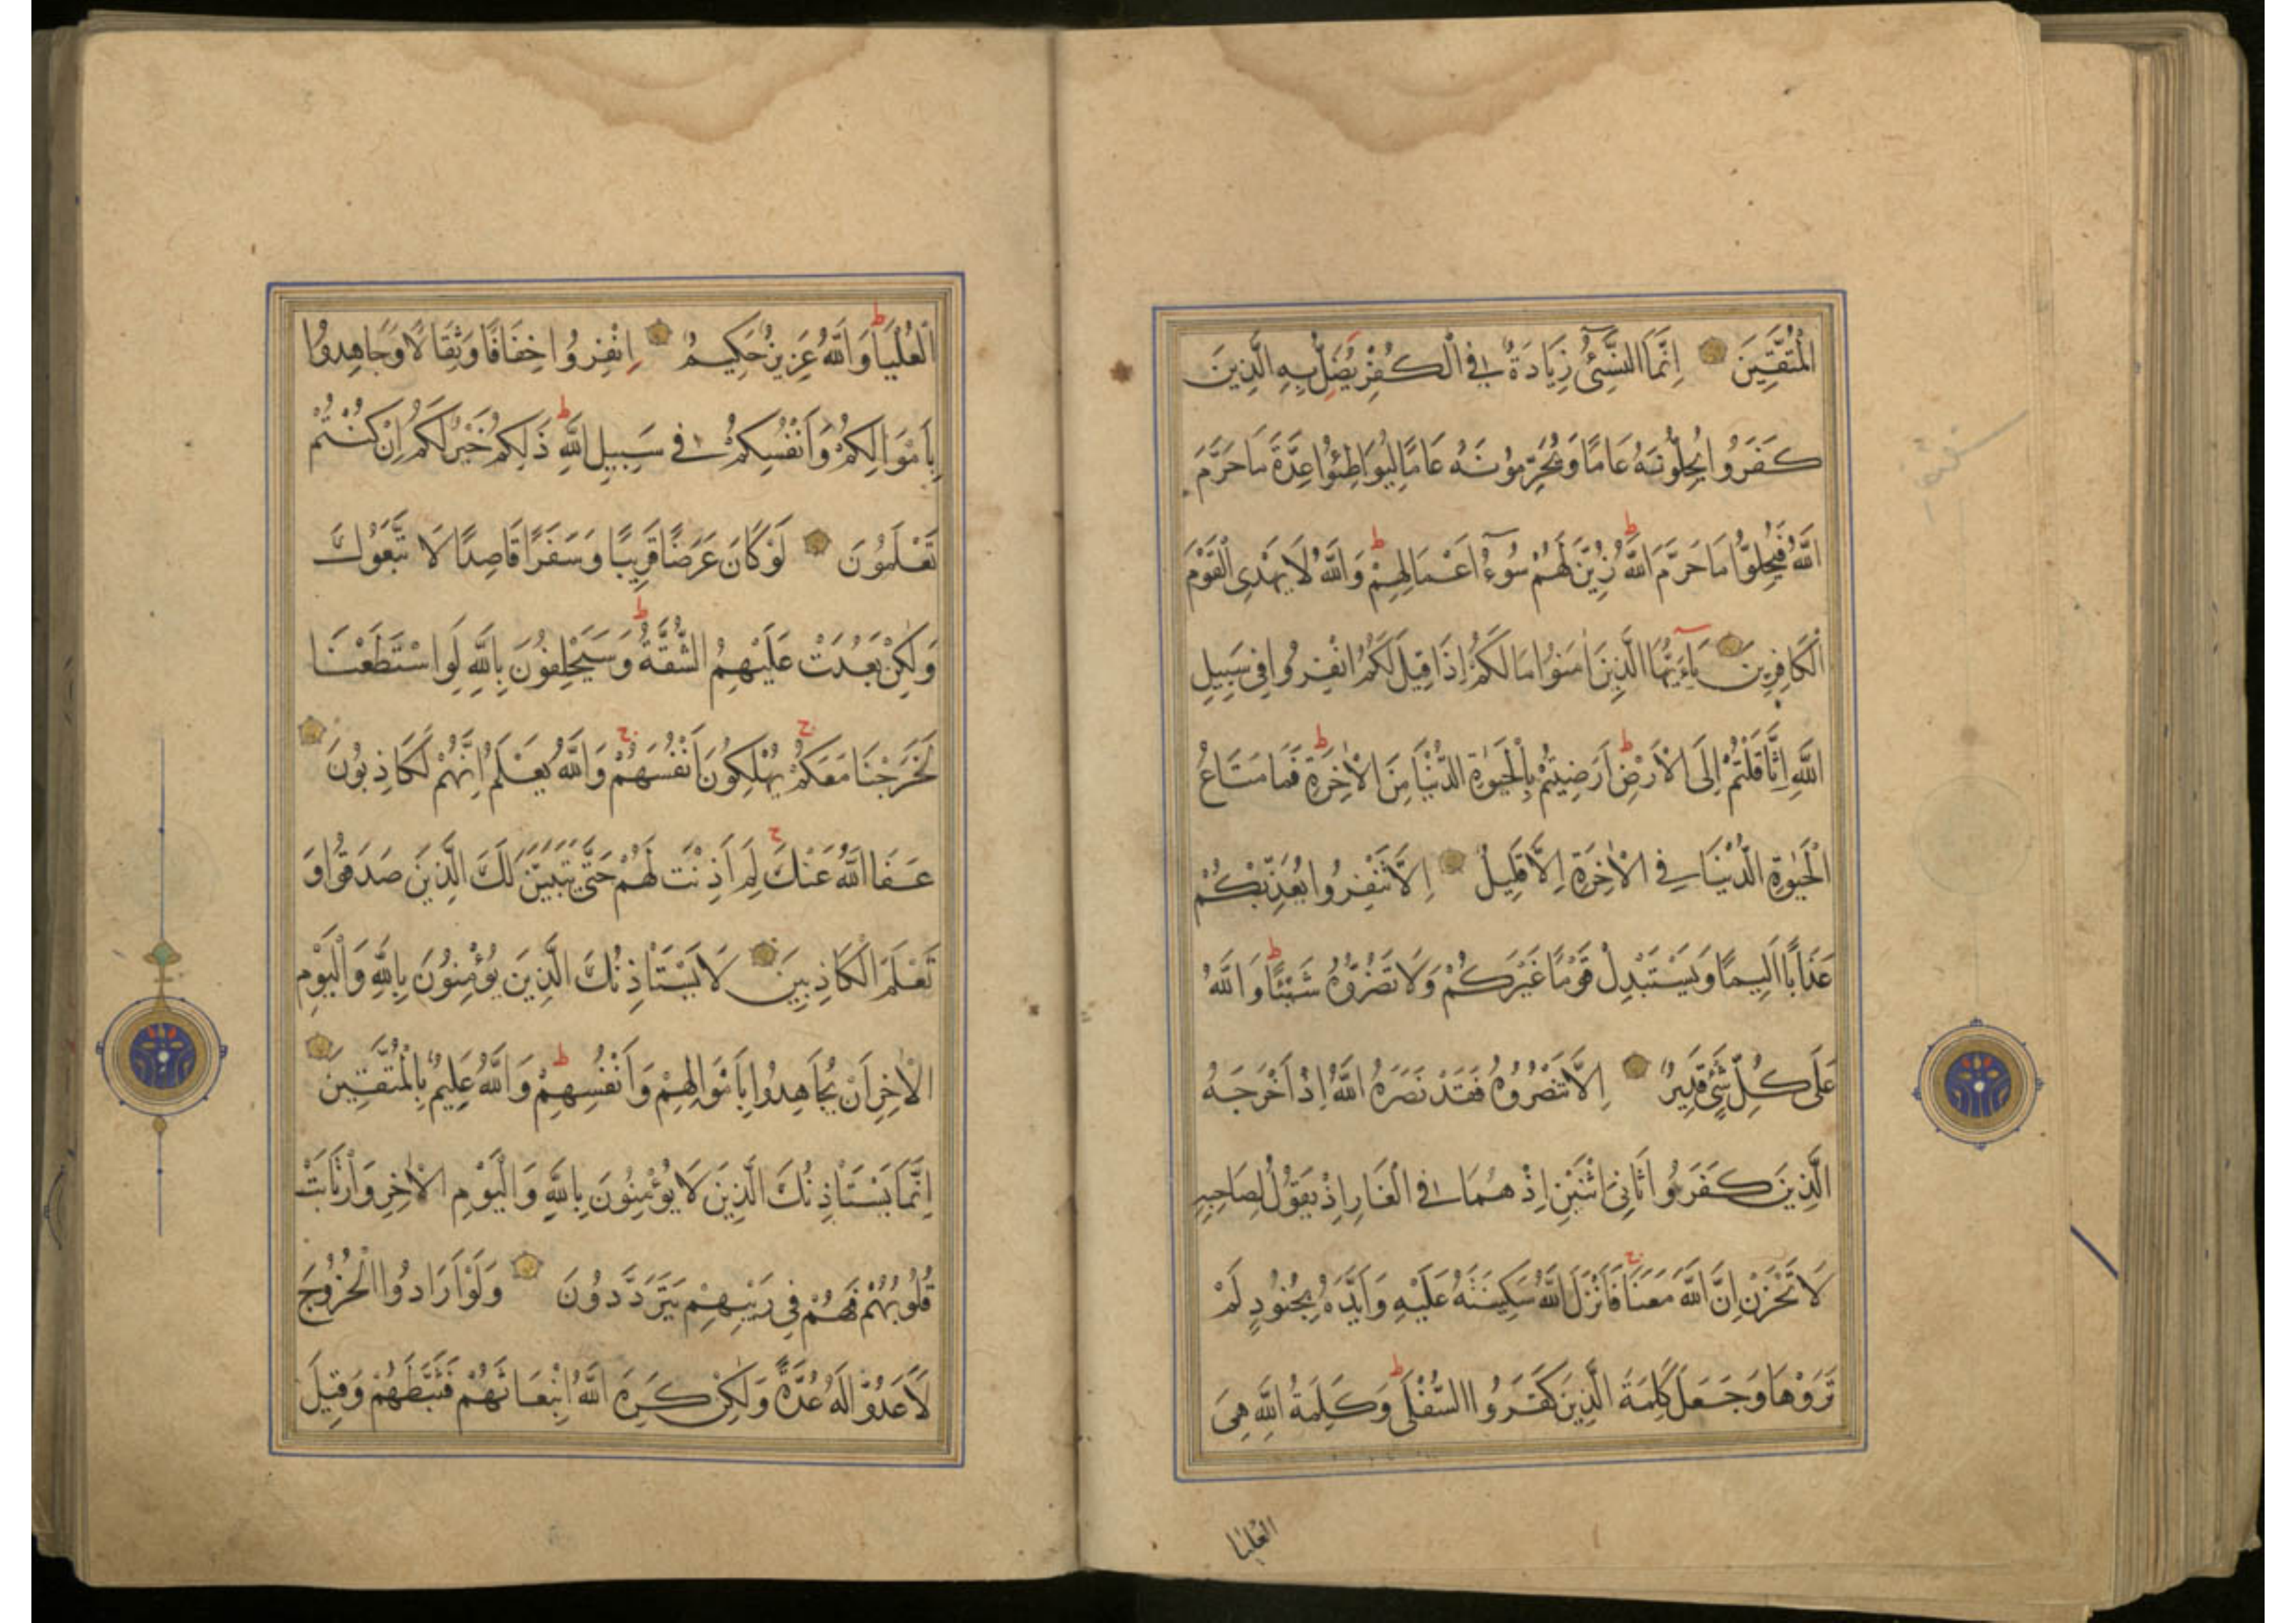 الْمُتَّقِينَ اِنَّمَا النَّسِٓئُ زِيَادَةٌ فِي الْكُفْرِ يُضَلُّ بِهِ الَّذِينَ
كَفَرُوا يُحِلُّونَهُ عَامًا وَيُحَرِّمُونَهُ عَامًا لِيُوَاطِئُوا عِدَّةَ مَا حَرَّمَ
اللَّهُ فَيُحِلُّوا مَا حَرَّمَ اللَّهُ ط زُيِّنَ لَهُمْ سُوٓءُ اَعْمَالِهِمْ ط وَاللَّهُ لَا يَهْدِي الْقَوْمَ
الْكَافِرِينَ يَاءَيُّهَا الَّذِينَ اٰمَنُوا مَا لَكُمْ اِذَا قِيلَ لَكُمُ انْفِرُوا فِي سَبِيلِ
اللَّهِ اثَّاقَلْتُمْ اِلَى الْاَرْضِ ط اَرَضِيتُمْ بِالْحَيٰوةِ الدُّنْيَا مِنَ الْاٰخِرَةِ ط فَمَا مَتَاعُ
الْحَيٰوةِ الدُّنْيَا فِي الْاٰخِرَةِ اِلَّا قَلِيلٌ اِلَّا تَنْفِرُوا يُعَذِّبْكُمْ
عَذَابًا اَلِيمًا وَيَسْتَبْدِلْ قَوْمًا غَيْرَكُمْ وَلَا تَضُرُّوهُ شَيْئًا ط وَاللَّهُ
عَلَى كُلِّ شَيْءٍ قَدِيرٌ اِلَّا تَنْصُرُوهُ فَقَدْ نَصَرَهُ اللَّهُ اِذْ اَخْرَجَهُ
الَّذِينَ كَفَرُوا ثَانِيَ اثْنَيْنِ اِذْ هُمَا فِي الْغَارِ اِذْ يَقُولُ لِصَاحِبِهِ
لَا تَحْزَنْ اِنَّ اللَّهَ مَعَنَا ج فَاَنْزَلَ اللَّهُ سَكِينَتَهُ عَلَيْهِ وَاَيَّدَهُ بِجُنُودٍ لَمْ
تَرَوْهَا وَجَعَلَ كَلِمَةَ الَّذِينَ كَفَرُوا السُّفْلَى ط وَكَلِمَةُ اللَّهِ هِيَ
العليا
الْعُلْيَا ط وَاللَّهُ عَزِيزٌ حَكِيمٌ اِنْفِرُوا خِفَافًا وَثِقَالًا وَجَاهِدُوا
بِاَمْوَالِكُمْ وَاَنْفُسِكُمْ فِي سَبِيلِ اللَّهِ ط ذَلِكُمْ خَيْرٌ لَكُمْ اِنْ كُنْتُمْ
تَعْلَمُونَ لَوْ كَانَ عَرَضًا قَرِيبًا وَسَفَرًا قَاصِدًا لَاتَّبَعُوكَ
وَلٰكِنْ بَعُدَتْ عَلَيْهِمُ الشُّقَّةُ ط وَسَيَحْلِفُونَ بِاللَّهِ لَوِ اسْتَطَعْنَا
لَخَرَجْنَا مَعَكُمْ ج يُهْلِكُونَ اَنْفُسَهُمْ ج وَاللَّهُ يَعْلَمُ اِنَّهُمْ لَكَاذِبُونَ
عَفَا اللَّهُ عَنْكَ ج لِمَ اَذِنْتَ لَهُمْ حَتَّى يَتَبَيَّنَ لَكَ الَّذِينَ صَدَقُوا وَ
تَعْلَمَ الْكَاذِبِينَ لَا يَسْتَاْذِنُكَ الَّذِينَ يُؤْمِنُونَ بِاللَّهِ وَالْيَوْمِ
الْاٰخِرِ اَنْ يُجَاهِدُوا بِاَمْوَالِهِمْ وَاَنْفُسِهِمْ ط وَاللَّهُ عَلِيمٌ بِالْمُتَّقِينَ
اِنَّمَا يَسْتَاْذِنُكَ الَّذِينَ لَا يُؤْمِنُونَ بِاللَّهِ وَالْيَوْمِ الْاٰخِرِ وَارْتَابَتْ
قُلُوبُهُمْ فَهُمْ فِي رَيْبِهِمْ يَتَرَدَّدُونَ وَلَوْ اَرَادُوا الْخُرُوجَ
لَاَعَدُّوا لَهُ عُدَّةً وَلٰكِنْ كَرِهَ اللَّهُ انْبِعَاثَهُمْ فَثَبَّطَهُمْ وَقِيلَ